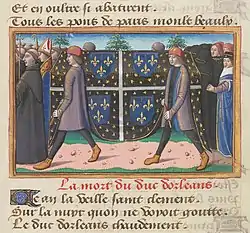 Et en oultre si abatirent
Tous les pons de paris moult beaulx
La mort du duc dorleans
Ean la veille saint clement
Sur la nuyt quon ne veoyt goutte
Le duc dorleans chaudement